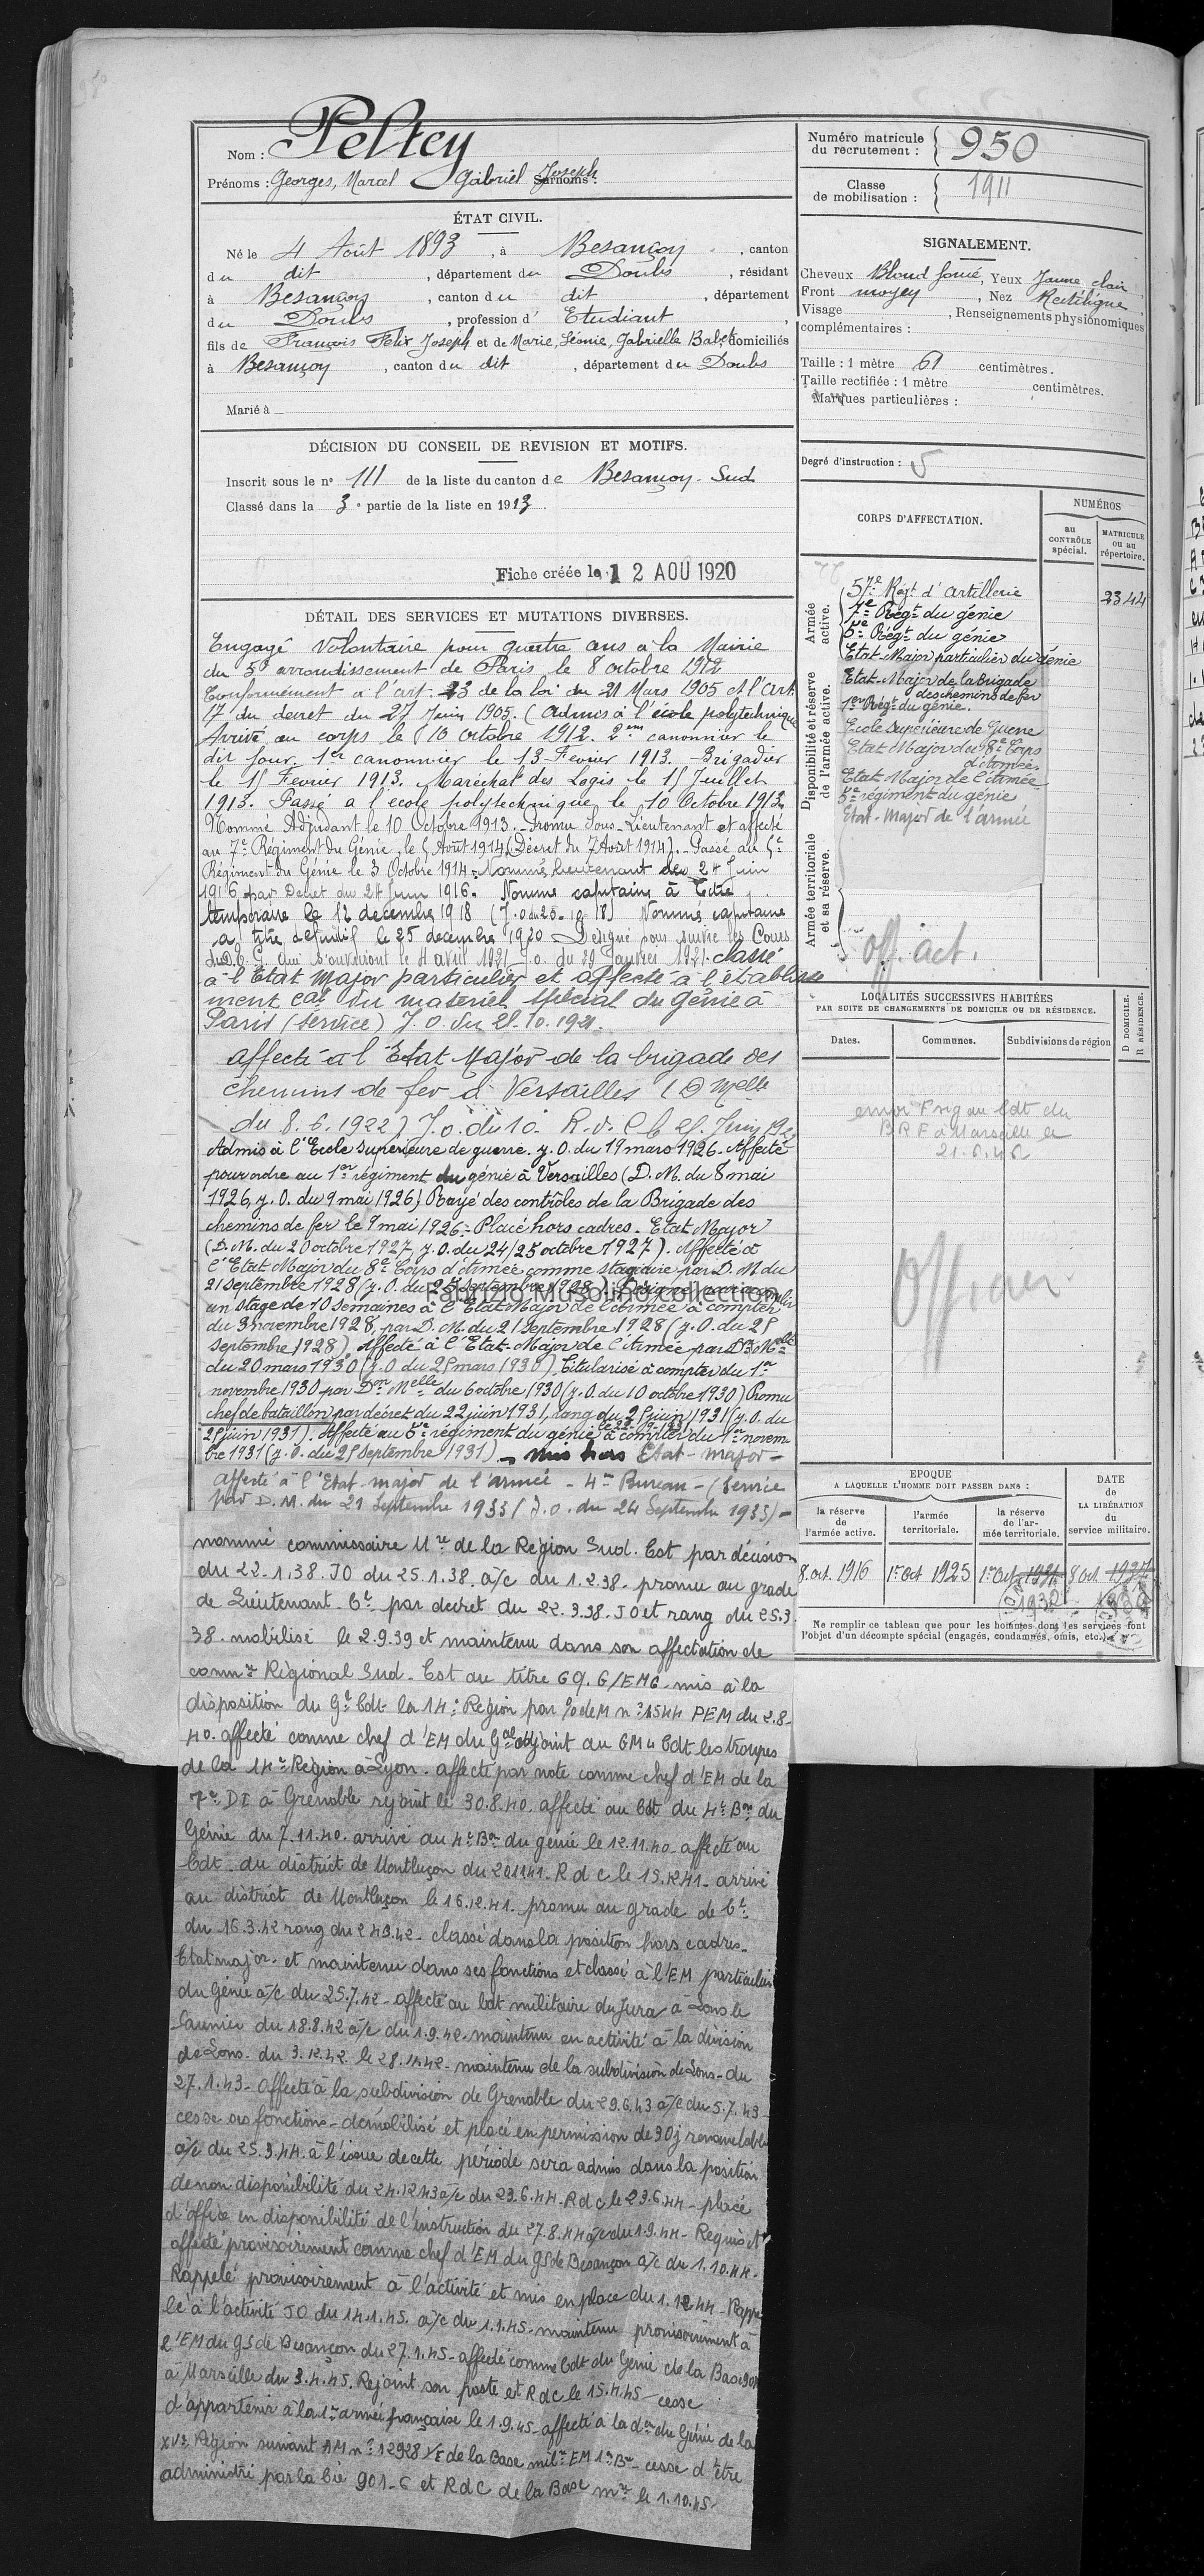 Nom : Peltey
Prénoms : Georges, Marcel Gabriel Joseph Surnoms :
ÉTAT CIVIL.
Né le 4 Août 1893, à Besançon, canton
du dit, département du Doubs, résidant
à Besançon, canton du dit, département
du Doubs, profession d' Etudiant
fils de François Felix Joseph et de Marie, Léonie, Gabrielle Babet domiciliés
à Besançon, canton du dit, département du Doubs
Marié à
DÉCISION DU CONSEIL DE REVISION ET MOTIFS.
Inscrit sous le n° 111 de la liste du canton de Besançon-Sud
Classé dans la 3e partie de la liste en 1913.
Fiche créée le 12 AOU 1920
DÉTAIL DES SERVICES ET MUTATIONS DIVERSES.
Engagé Volontaire pour quatre ans à la Mairie
du 5e arrondissement de Paris le 8 octobre 1912
Conformément à l'art. 23 de la loi du 21 Mars 1905 et l'art.
17 du decret du 27 Juin 1905. (Admis à l'école polytechnique
Arrivé au corps le 10 octobre 1912. 2eme canonnier le
dit jour. 1er canonnier le 13 Fevrier 1913. Brigadier
le 15 Fevrier 1913. Maréchal des Logis le 15 Juillet
1913. Passé a l'école polytechnique le 10 Octobre 1913
Nommé Adjudant le 10 Octobre 1913. Promu Sous-Lieutenant et affecté
au 7e Régiment du Génie, le 5 Août 1914 (Décret du 7 Août 1914). Passé au 5e
Régiment du Génie le 3 Octobre 1914. Nommé lieutenant du 24 Juin
1916 par Decret du 24 Juin 1916. Nommé capitaine à titre
temporaire le 12 decembre 1918 (J.O du 25-12-18) Nommé capitaine
a titre definitif le 25 decembre 1920 Designé pour suivre les Cours
qui s'ouvriront le 4 avril 1921 J.O. du 29 Janvier 1921. classé
à l'Etat Major particulier et affecté à l'établisse
ment cal du materiel spécial du Génie à
Paris (service) J.O. du 21.10.1921.
affecté à l'Etat Major de la brigade des
chemins de fer à Versailles (D Melle
du 8.6.1922) J.O. du 10.
Admis à l'Ecole supérieure de guerre. J.O. du 19 mars 1926. Affecté
pour ordre au 1er régiment du génie à Versailles (D.M. du 8 mai
1926, J.O. du 9 mai 1926) Rayé des contrôles de la Brigade des
chemins de fer le 9 mai 1926. Placé hors cadres. Etat Major
(D.M. du 20 octobre 1927, J.O. du 24/25 octobre 1927). Affecté à
l'Etat Major du 8e Corps d'Armée comme stagiaire par D.M du
21 septembre 1928 (J.O. du 25 septembre 1928)
Fabrizio Musolino collection
un stage de 10 semaines à l'Etat Major de l'armée à compter
du 3 novembre 1928, par D.M. du 21 septembre 1928 (J.O. du 25
septembre 1928). Affecté à l'Etat-Major de l'Armée par Don Melle
du 20 mars 1930 (J.O du 25 mars 1930). Titularisé à compter du 1er
novembre 1930 par Don Melle du 6 octobre 1930 (J.O. du 10 octobre 1930) Promu
chef de bataillon par décret du 22 juin 1931, rang du 25 juin 1931 (J.O. du
25 juin 1931). Affecté au 5e régiment du génie à compter du 1er novem
bre 1931 (J.O. du 25 septembre 1931). - mis hors Etat-major-
affecté à l'Etat-major de l'armée - 4e Bureau - (service
par D.M. du 21 Septembre 1933 (J.O. du 24 Septembre 1933) -
nommé commissaire Mre de la Région Sud. Est par décision
du 22.1.38. JO du 25.1.38. a/c du 1.2.38. promu au grade
de Lieutenant-Ct par decret du 22.3.38. JO et rang du 25.3.
38. mobilisé le 2.9.39 et maintenu dans son affectation de
commre Régional Sud-Est au titre GQ.G/EMG. mis à la
disposition du Gl Cdt la 14e Région par nº 1544 PEM du 2.8.
40. affecté comme chef d'EM du Gal adjoint au GM Cdt les troupes
de la 14e Région à Lyon. affecté par note comme chef d'EM de la
7e DI à Grenoble rejoint le 30.8.40. affecté au Cdt du 4e Bon du
Génie du 7.11.40. arrivé au 4e Bon du génie le 12.11.40 affecté au
Cdt du district de Montluçon du 20.11.41. R d c le 15.12.41. arrivé
au district de Montluçon le 16.12.41. promu au grade de Cl.
du 16.3.42 rang du 24.3.42. classé dans la position hors cadres.
Etat major. et maintenu dans ses fonctions et classé à l'EM particulier
du Génie a/c du 25.7.42. affecté au Cdt militaire du Jura à Lons le
Saunier du 18.8.42 a/c du 1.9.42. maintenu en activité à la division
de Lons. du 3.12.42 le 28.11.42. maintenu de la subdivision de Lons. du
27.1.43. affecté à la subdivision de Grenoble du 29.6.43 a/c du 5.7.43.
cesse ses fonctions. démobilisé et placé en permission de 90j renouvelable
a/c du 25.3.44. à l'issue de cette période sera admis dans la position
de non disponibilité du 24.12.43 a/c du 23.6.44. R d c le 23.6.44 - placé
d'office en disponibilité de l'instruction du 27.8.44 a/c du 1.9.44. Requis et
affecté provisoirement comme chef d'EM du GS de Besançon a/c du 1.10.44.
Rappelé provisoirement à l'activité et mis en place du 1.12.44. Rappe
lé à l'activité JO du 14.1.45. a/c du 1.1.45. maintenu provisoirement à
l'EM du GS de Besançon du 27.1.45. affecté comme Cdt du Génie de la Base 901
à Marseille du 3.4.45. Rejoint son poste et R d c le 15.4.45 cesse
d'appartenir à la 1re armée française le 1.9.45. affecté à la don du Génie de la
XVe Région suivant AM nº 12928 de la Base milre EM 1er Bu. cesse d'être
administré par la Cie 901-6 et R d C de la Base mre le 1.10.45.
Numéro matricule du recrutement : 950
Classe de mobilisation : 1911
SIGNALEMENT.
Cheveux Blond foncé, Yeux Jaune clair
Front moyen, Nez Rectiligne
Visage , Renseignements physionomiques
complémentaires :
Taille : 1 mètre 61 centimètres.
Taille rectifiée : 1 mètre centimètres.
Marques particulières :
Degré d'instruction : 5
CORPS D'AFFECTATION.
NUMÉROS
au CONTRÔLE spécial.
MATRICULE ou au répertoire.
Armée active.
57e Régt d'artillerie 2344
7e Régt du génie
5e Régt du génie
Etat-Major particulier du génie
Disponibilité et réserve de l'armée active.
Etat-Major de la Brigade
des chemins de fer
1er Régt du génie.
Ecole Supérieure de Guerre
Etat Major du 8e Corps
d'Armée
Etat Major de l'Armée
5e régiment du génie
Etat-Major de l'armée
Armée territoriale et sa réserve.
off. act.
LOCALITÉS SUCCESSIVES HABITÉES
PAR SUITE DE CHANGEMENTS DE DOMICILE OU DE RÉSIDENCE.
D DOMICILE.
R RÉSIDENCE.
Dates.
Communes.
Subdivisions de région
envoi au Cdt du
BRF à Marseille le
21.6.46
Officier
ÉPOQUE
A LAQUELLE L'HOMME DOIT PASSER DANS :
DATE de LA LIBÉRATION du service militaire.
la réserve de l'armée active.
l'armée territoriale.
la réserve de l'armée territoriale.
8 oct. 1916
1er oct 1925
1er Oct 1931
1932
8 oct. 1937
Ne remplir ce tableau que pour les hommes dont les services font
l'objet d'un décompte spécial (engagés, condamnés, omis, etc.).